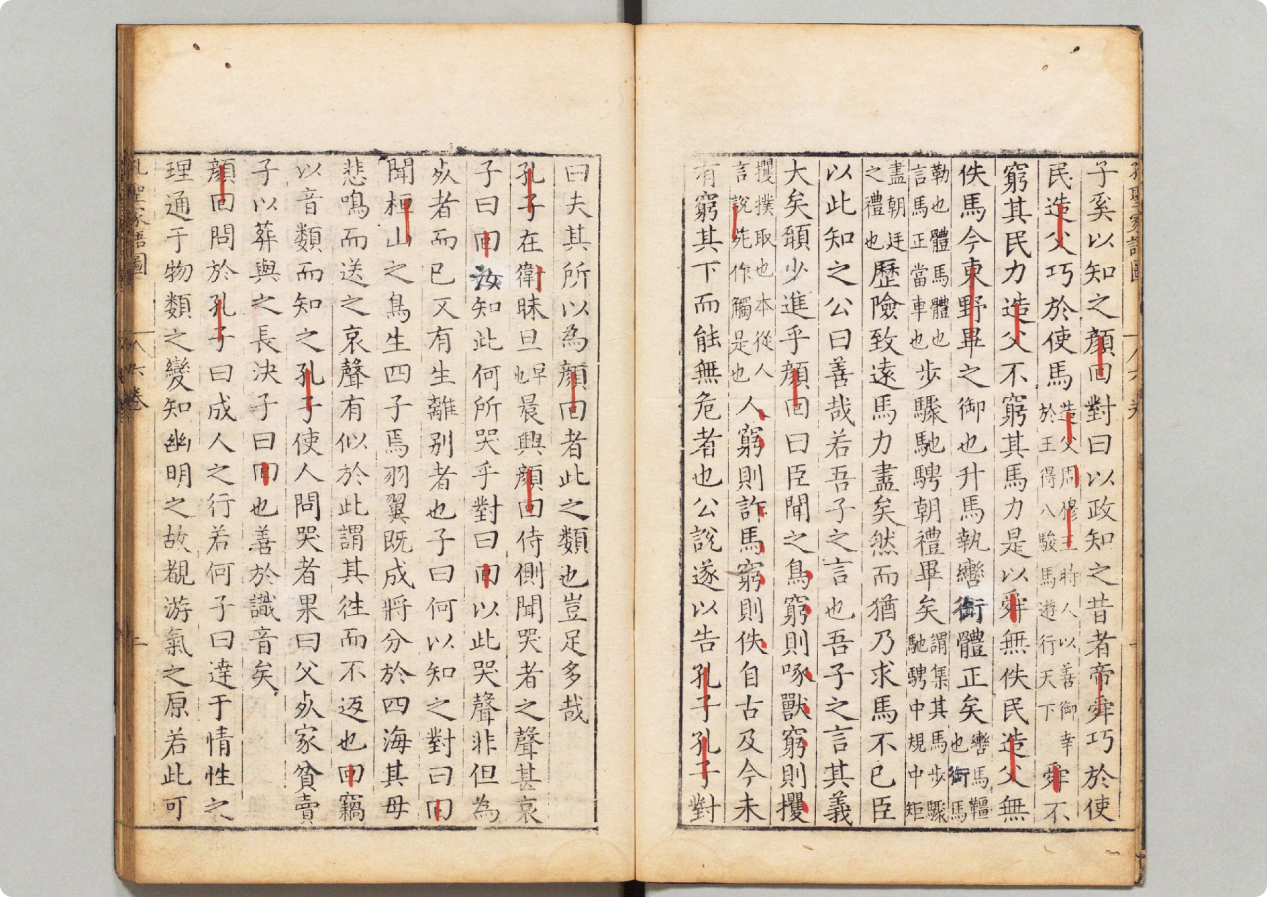 子奚以知之顔回對曰以政知之昔者帝舜巧於使
民造父巧於使馬造父周穆王時人以善御幸於王得八駿馬遊行天下舜不
窮其民力造父不窮其馬力是以舜無佚民造父無
佚馬今東野畢之御也升馬執轡銜體正矣轡馬韁也銜馬
勒也體馬體也言馬正當車也步驟馳騁朝禮畢矣謂集其馬步驟馳騁中規中矩
盡朝廷之禮也歷險致遠馬力盡矣然而猶乃求馬不已臣
以此知之公曰善哉若吾子之言也吾子之言其義
大矣頴少進乎顔回曰臣聞之鳥窮則啄獸窮則攫
攫撲取也本從人言說苑作觸是也人窮則詐馬窮則佚自古及今未
有窮其下而能無危者也公說遂以告孔子孔子對
曰夫其所以為顔回者此之類也豈足多哉
孔子在衛昧旦也早晨興顔回侍側聞哭者之聲甚哀
子曰回汝知此何所哭乎對曰回以此哭聲非但為
死者而已又有生離别者也子曰何以知之對曰回
聞桓山之鳥生四子焉羽翼既成將分於四海其母
悲鳴而送之哀聲有似於此謂其往而不返也回竊
以音類而知之孔子使人問哭者果曰父死家貧賣
子以葬與之長決子曰回也善於識音矣
顔回問於孔子曰成人之行若何子曰達于情性之
理通于物類之變知幽明之故覩游氣之原若此可